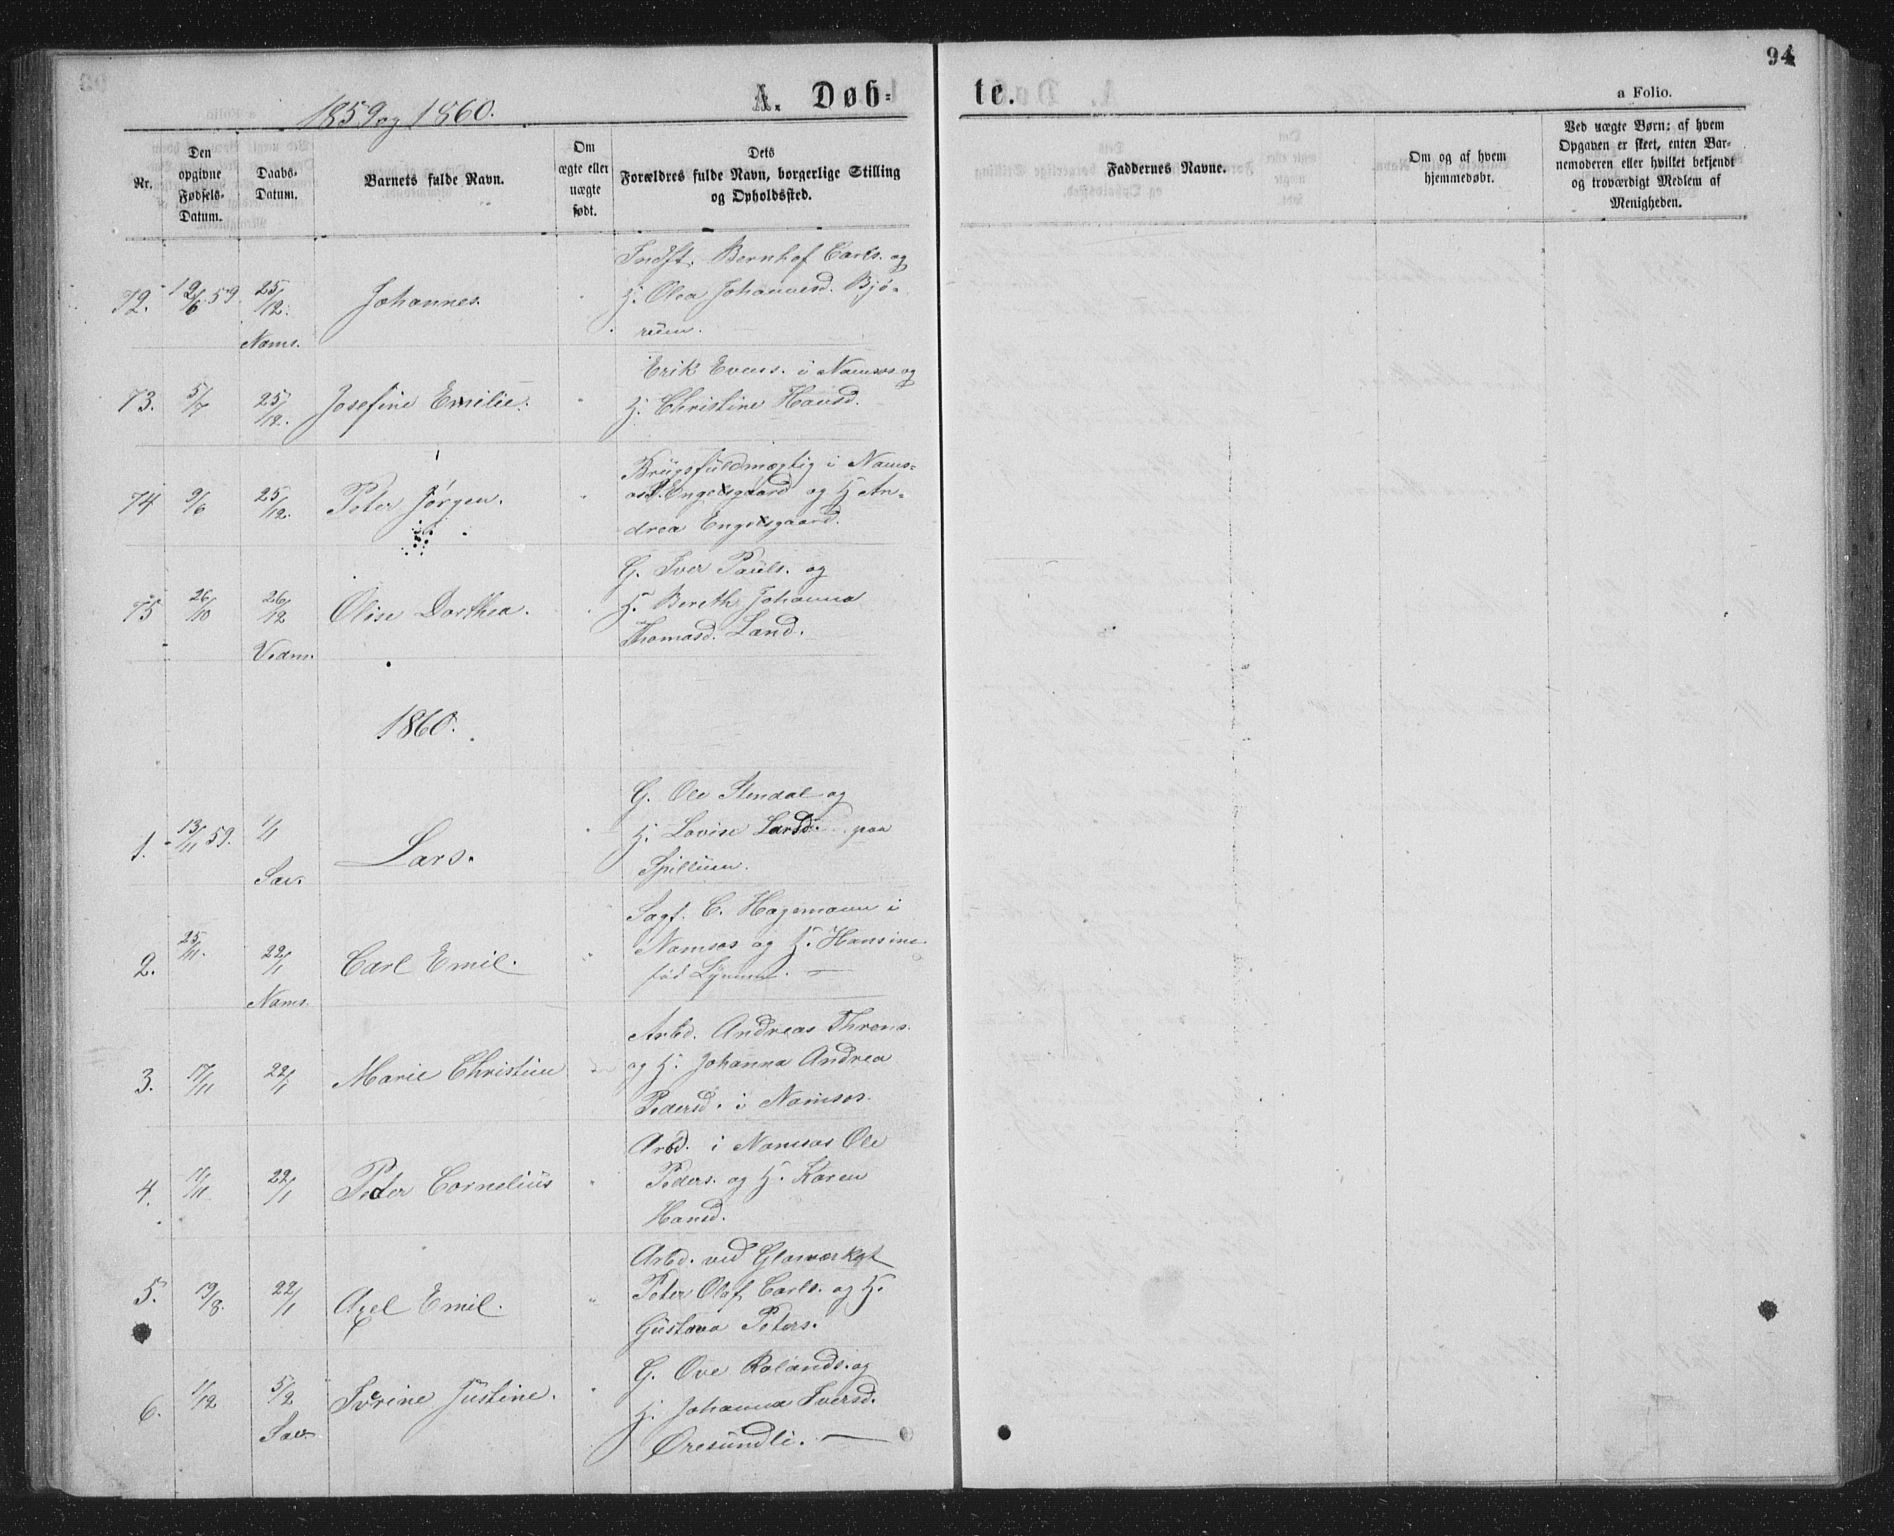 94
1859 og 1860.
A. Døb-
te.
a Folio.
Nr.
Den
opgivne
Fødsels-
Datum.
Daabs-
Datum.
Barnets fulde Navn.
Om
ægte eller
uægte
født.
Dets
Forældres fulde Navn, borgerlige Stilling
og Opholdssted.
Faddernes Navne.
Om og af hvem
hjemmedøbt.
Ved uægte Børn: af hvem
Opgaven er skeet, enten Bar-
nemoderen eller hvilket bekjendt
og troværdigt Medlem af
Menigheden.
Indst. Bernhof Carls. og
72. 12/6 59 25/12. Johannes. H. Olea Johannesd. Bjø-
Nams. rum.
Erik Evens. i Namsos og
73. 5/7 25/12. Josefine Emilie. H. Christine Hansd.
Brugsfuldmægtig i Nams-
74 9/6 25/12. Peter Jørgen. os P. Engelsgaard og H An-
drea Engelsgaard.
G. Iver Pauls. og
75 26/10 26/12 Olise Dorthea. H. Bereth Johanna
Vedm. Thomasd. Land.
1860.
G. Ole Stendal og
1. 13/11 59. 1/1 Lars. H. Lovise Larsd. paa
Sæv. Spillum.
Sagf. C. Hagemann i
2. 25/11. 22/1 Carl Emil. " Namsos og H. Hansine
Nams. fød Lymm.
Arbd. Andreas Throns.
3. 17/11 22/1 Marie Christine og H. Johanna Andrea
Pedersd. i Namsos.
Arbd. i Namsos Ole
4. 11/11 22/1 Peter Cornelius " Peders. og H. Karen
Hansd.
Arbd. ved Glasværket
5. 19/8. 22/1 Axel Emil. " Peter Olof Carls. og H.
Gustava Peters.
G. Ove Rolands. og
6. 1/12 5/2 Iverine Justine. " H. Johanna Iversd.
Sæv. Øresundli.